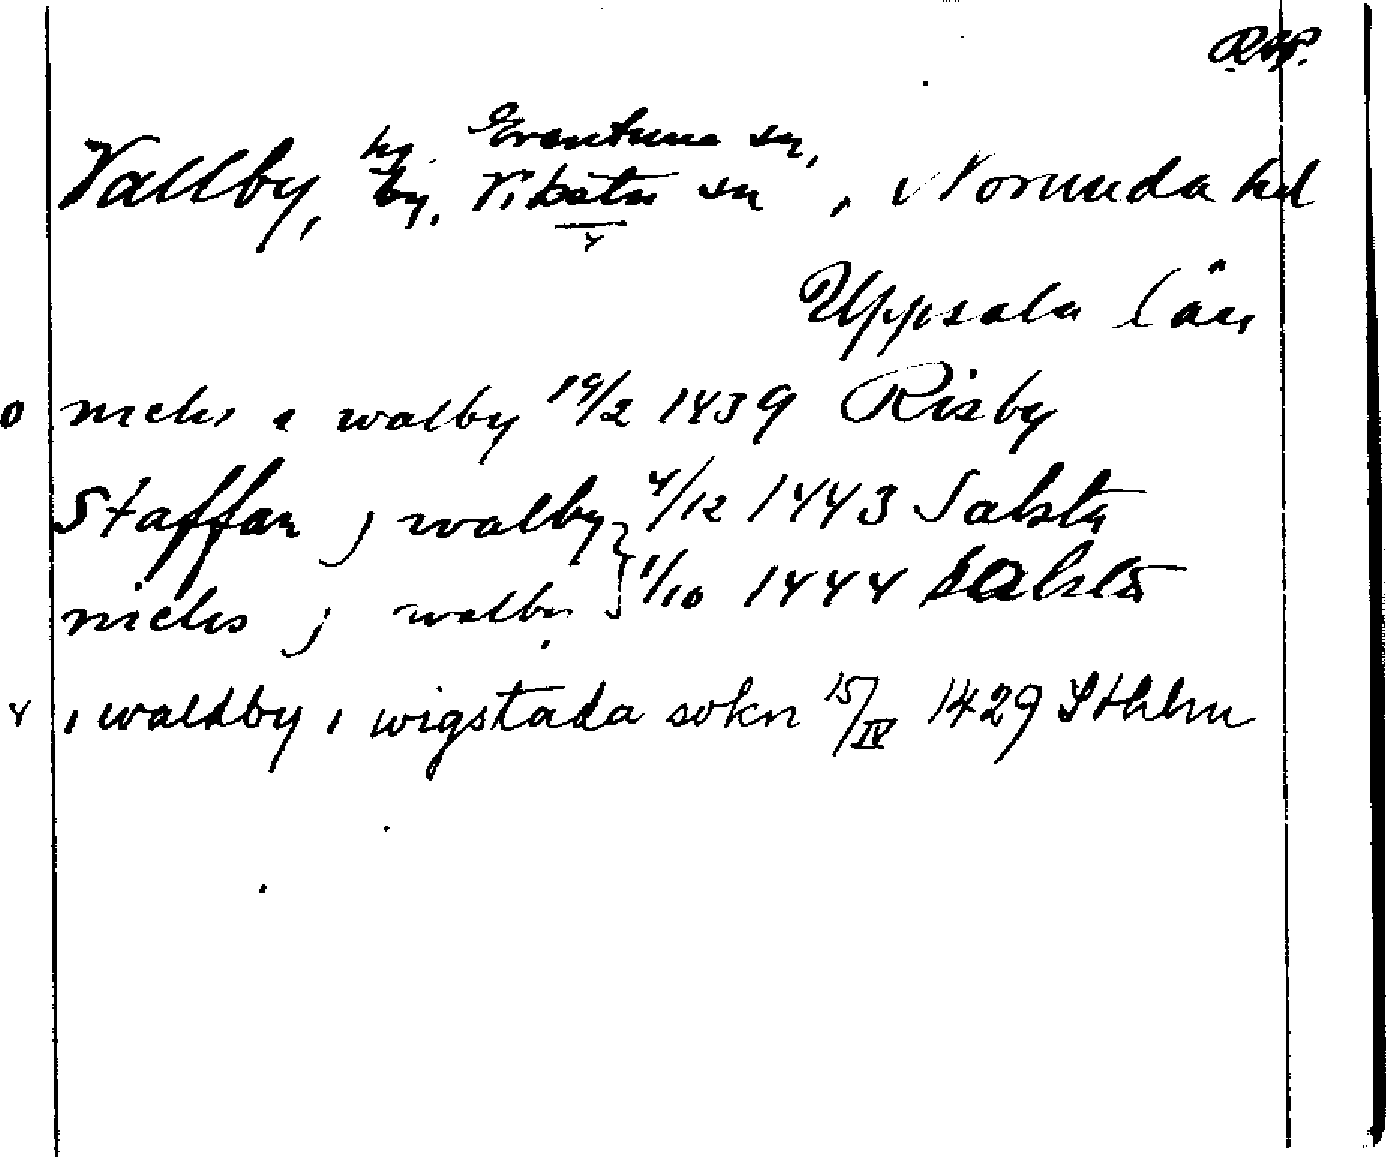 Rap.
Vallby, by. Erentuna sn,
by, Viksta sn, Norunda hd
γ
Uppsala län
o niclis i walby 19/2 1439 Risby
Staffan j walby } 4/12 1443 Salsta
niclis j walby } 1/10 1444 Salsta
γ i waldby i wigstada sokn 15/IV 1429 Sthlm